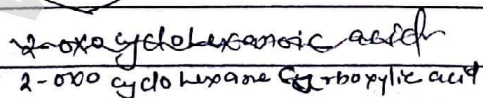 2-oxocyclohexanoic acid
2-oxo cyclohexane carboxylic acid